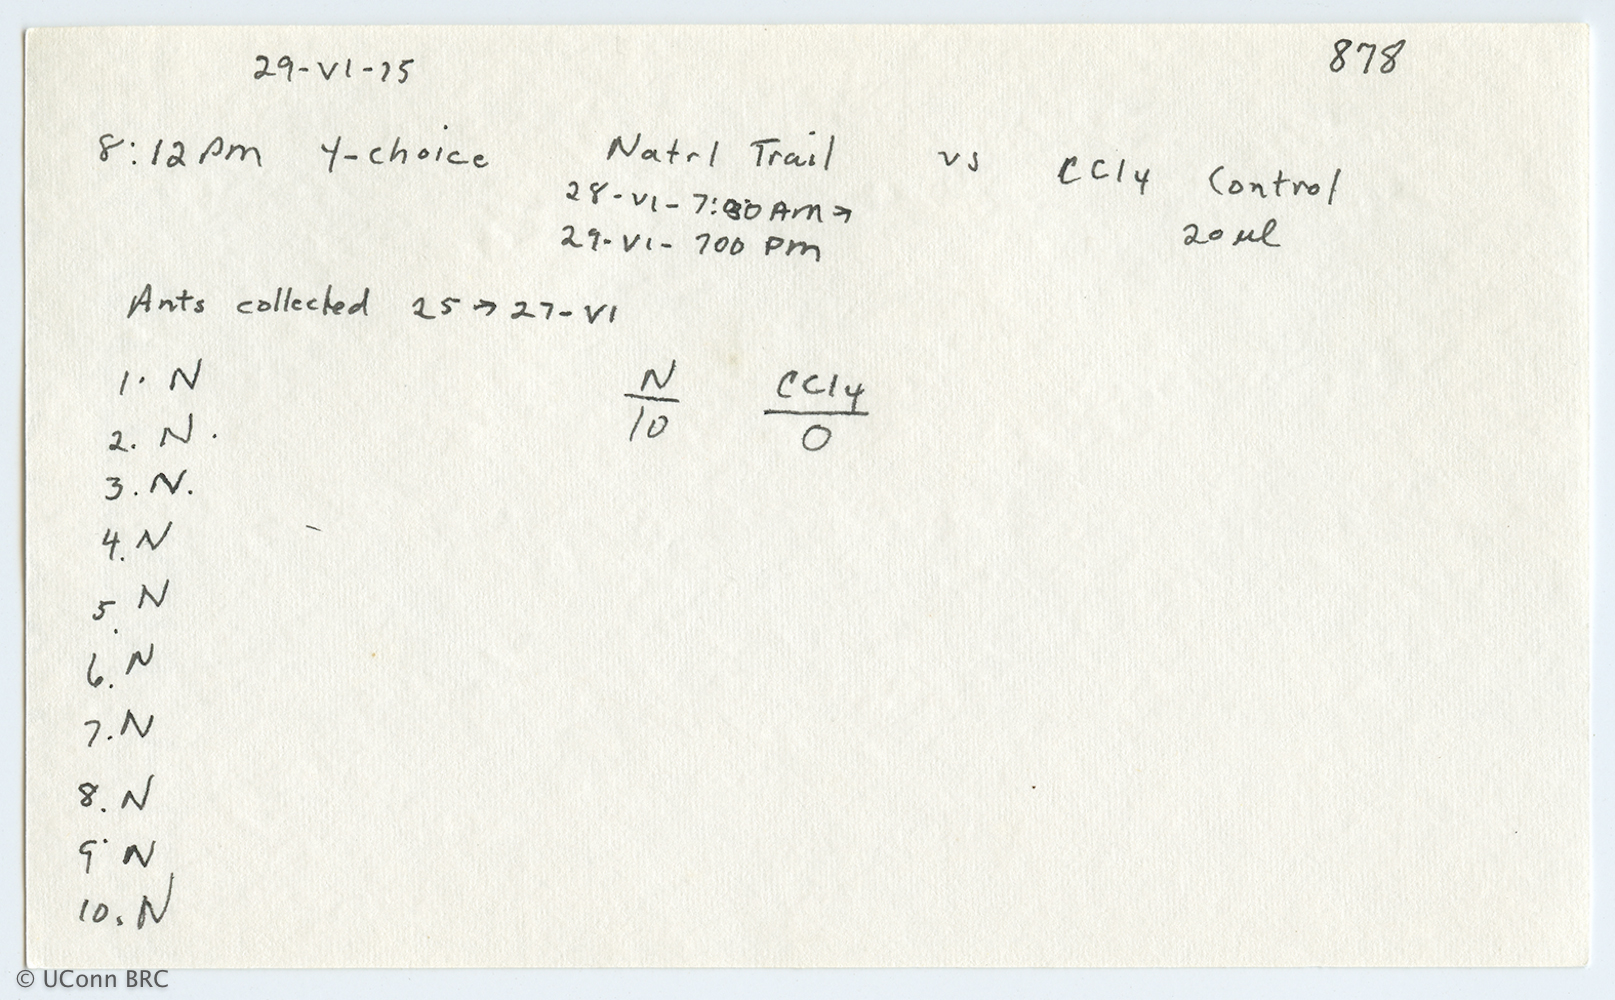 29-VI-75 878
8:12 PM Y-choice Natrl Trail vs CCl4 Control
28-VI-7:00 AM→ 20 µl
29-VI- 700 PM
Ants collected 25→27-VI
1. N N CCl4
2. N. 10 0
3. N.
4. N
5. N
6. N
7. N
8. N
9. N
10. N
© UConn BRC